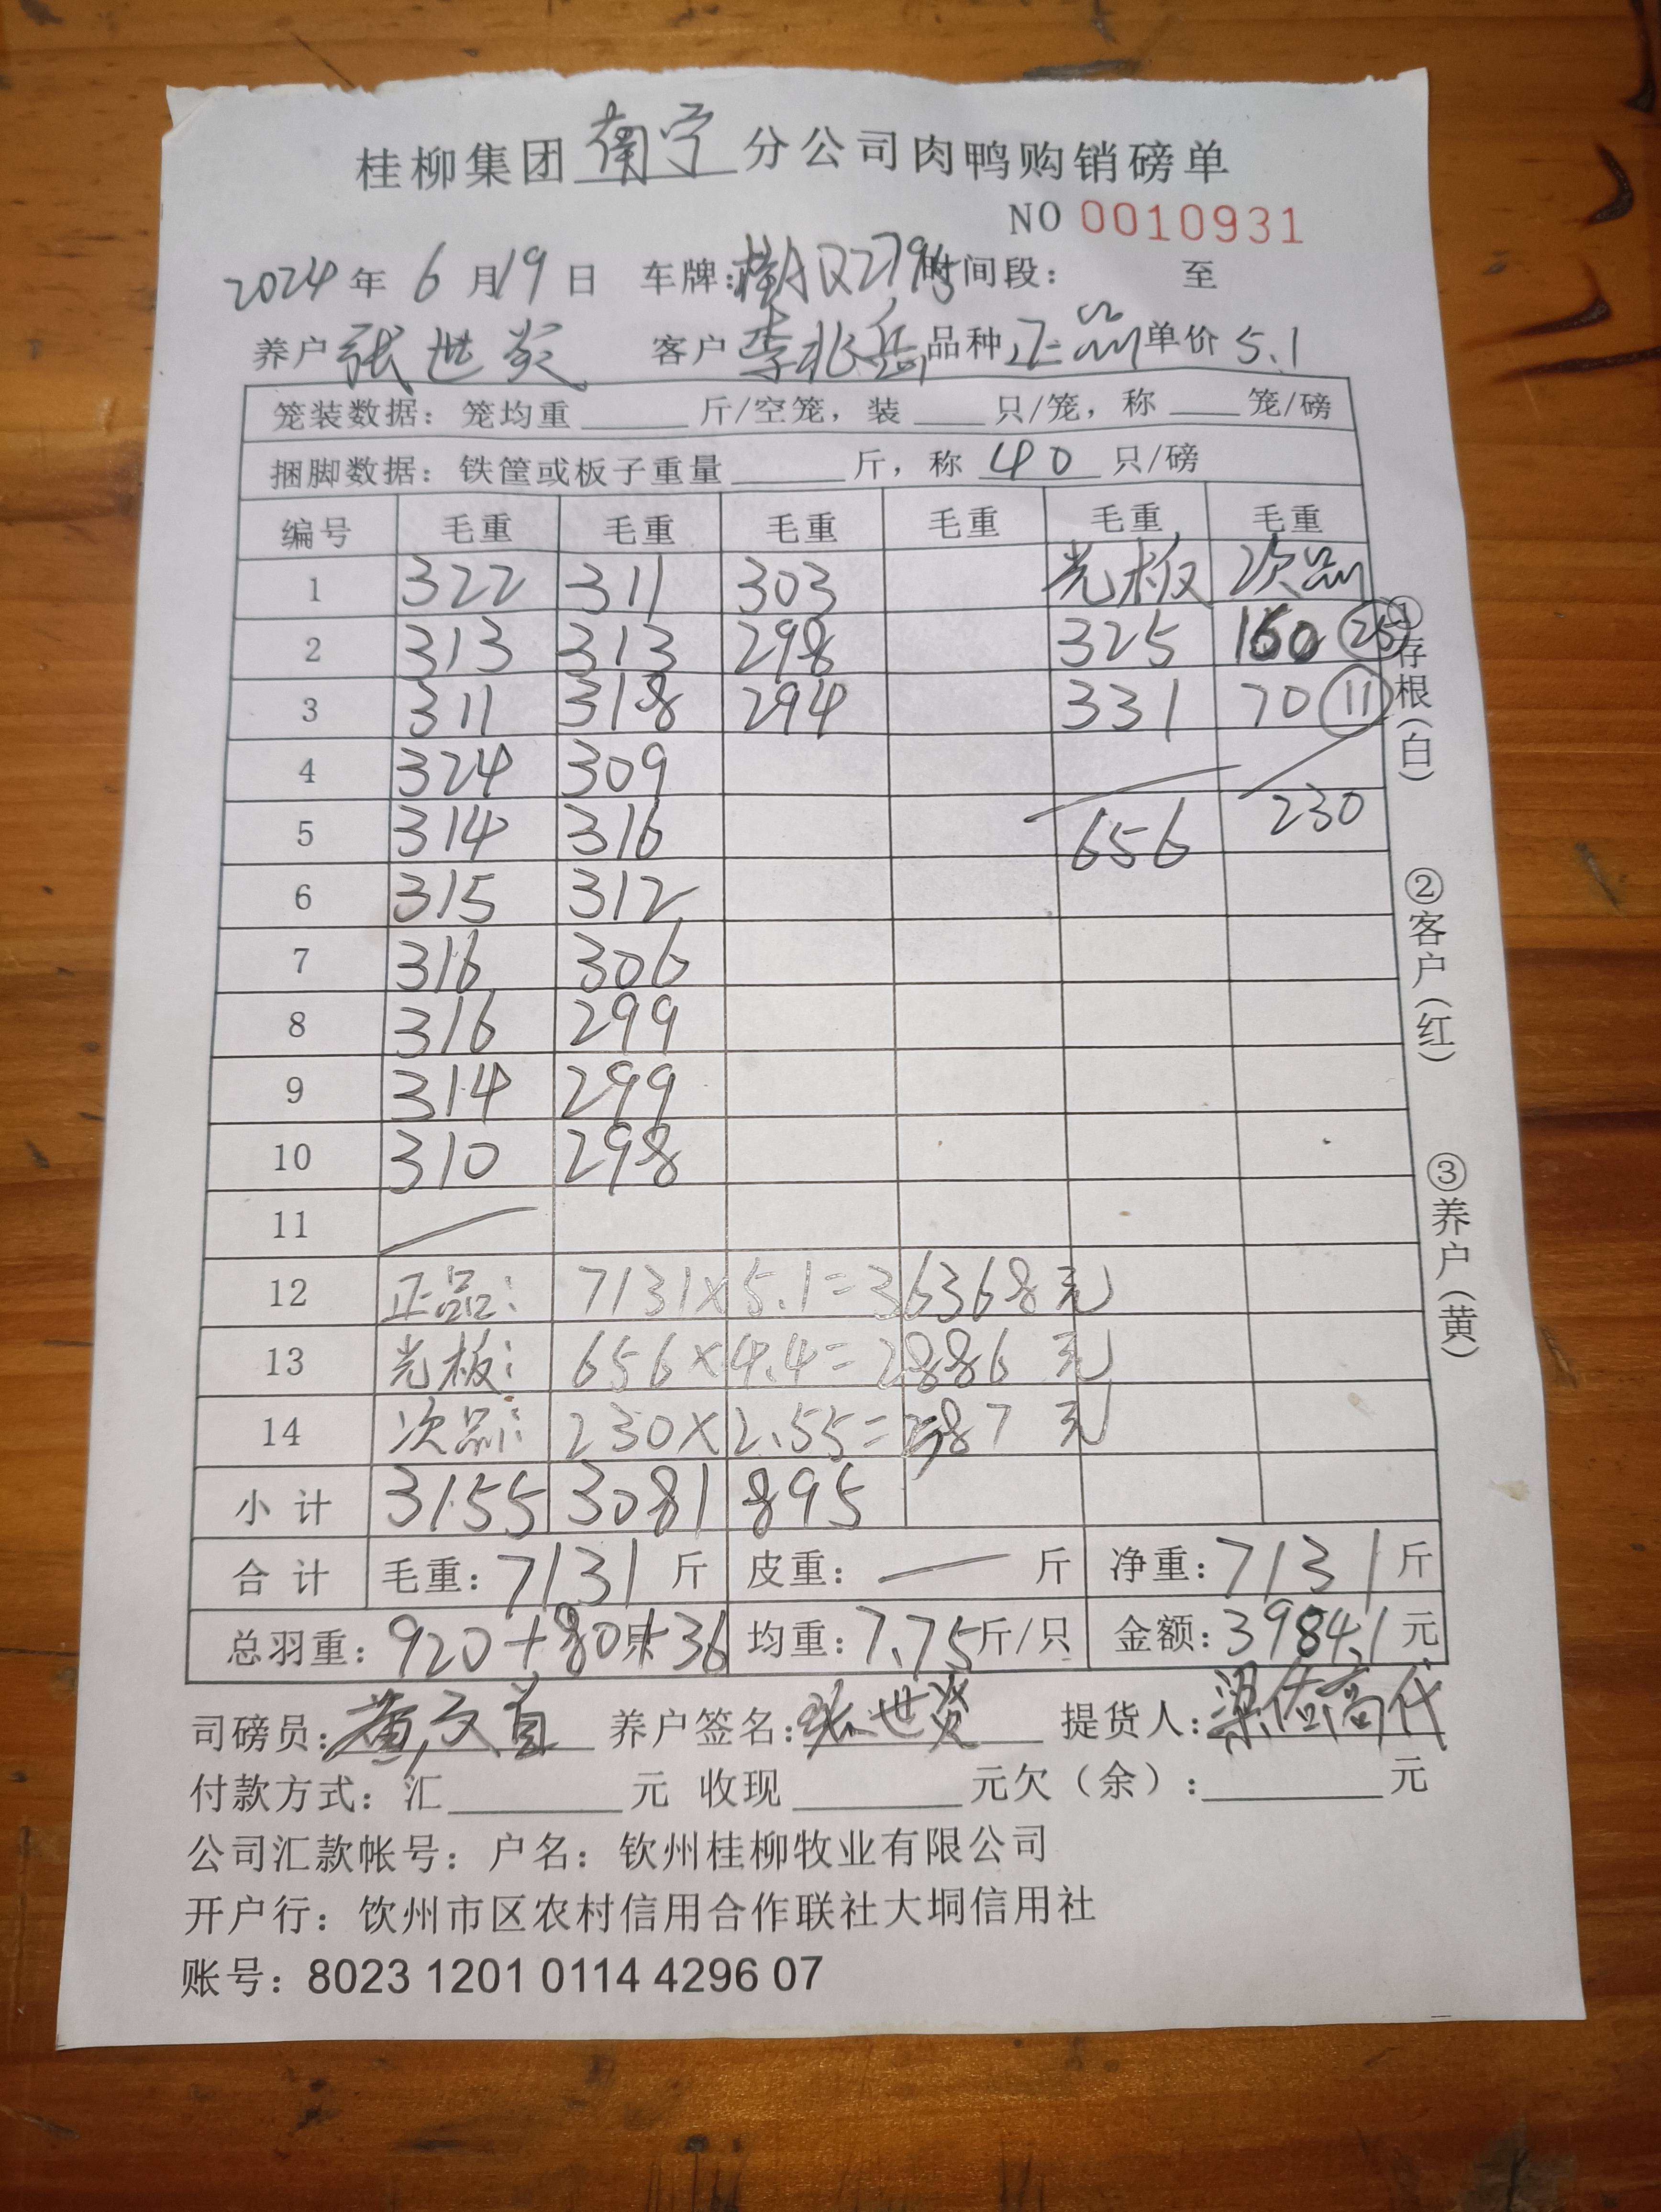 桂柳集团南宁分公司肉鸭购销磅单
NO 0010931
2024年6月19日 车牌:桂A 时间段: 至
养户 张世 客户 李兆岳 品种 正品 单价 5.1
笼装数据: 笼均重 斤/空笼, 装 只/笼, 称 笼/磅
捆脚数据: 铁筐或板子重量 斤, 称 40 只/磅
编号 毛重 毛重 毛重 毛重 毛重 毛重
1 322 311 303 光板 次品
2 313 313 298 325 160 25
3 311 318 294 331 70 11
4 324 309
5 314 316 656 230
6 315 312
7 316 306
8 316 299
9 314 299
10 310 298
11
12 正品: 7131×5.1=36368元
13 光板: 656×4.4=2886元
14 次品: 230×2.55=587元
小计 3155 3081 895
合计 毛重:7131斤 皮重:—斤 净重:7131斤
总羽重:920+80+36 均重:7.75斤/只 金额:39841元
司磅员: 养户签名:张世 提货人:梁
付款方式: 汇 元 收现 元欠(余): 元
公司汇款帐号: 户名: 钦州桂柳牧业有限公司
开户行: 钦州市区农村信用合作联社大垌信用社
账号: 8023 1201 0114 4296 07
①存根(白)
②客户(红)
③养户(黄)